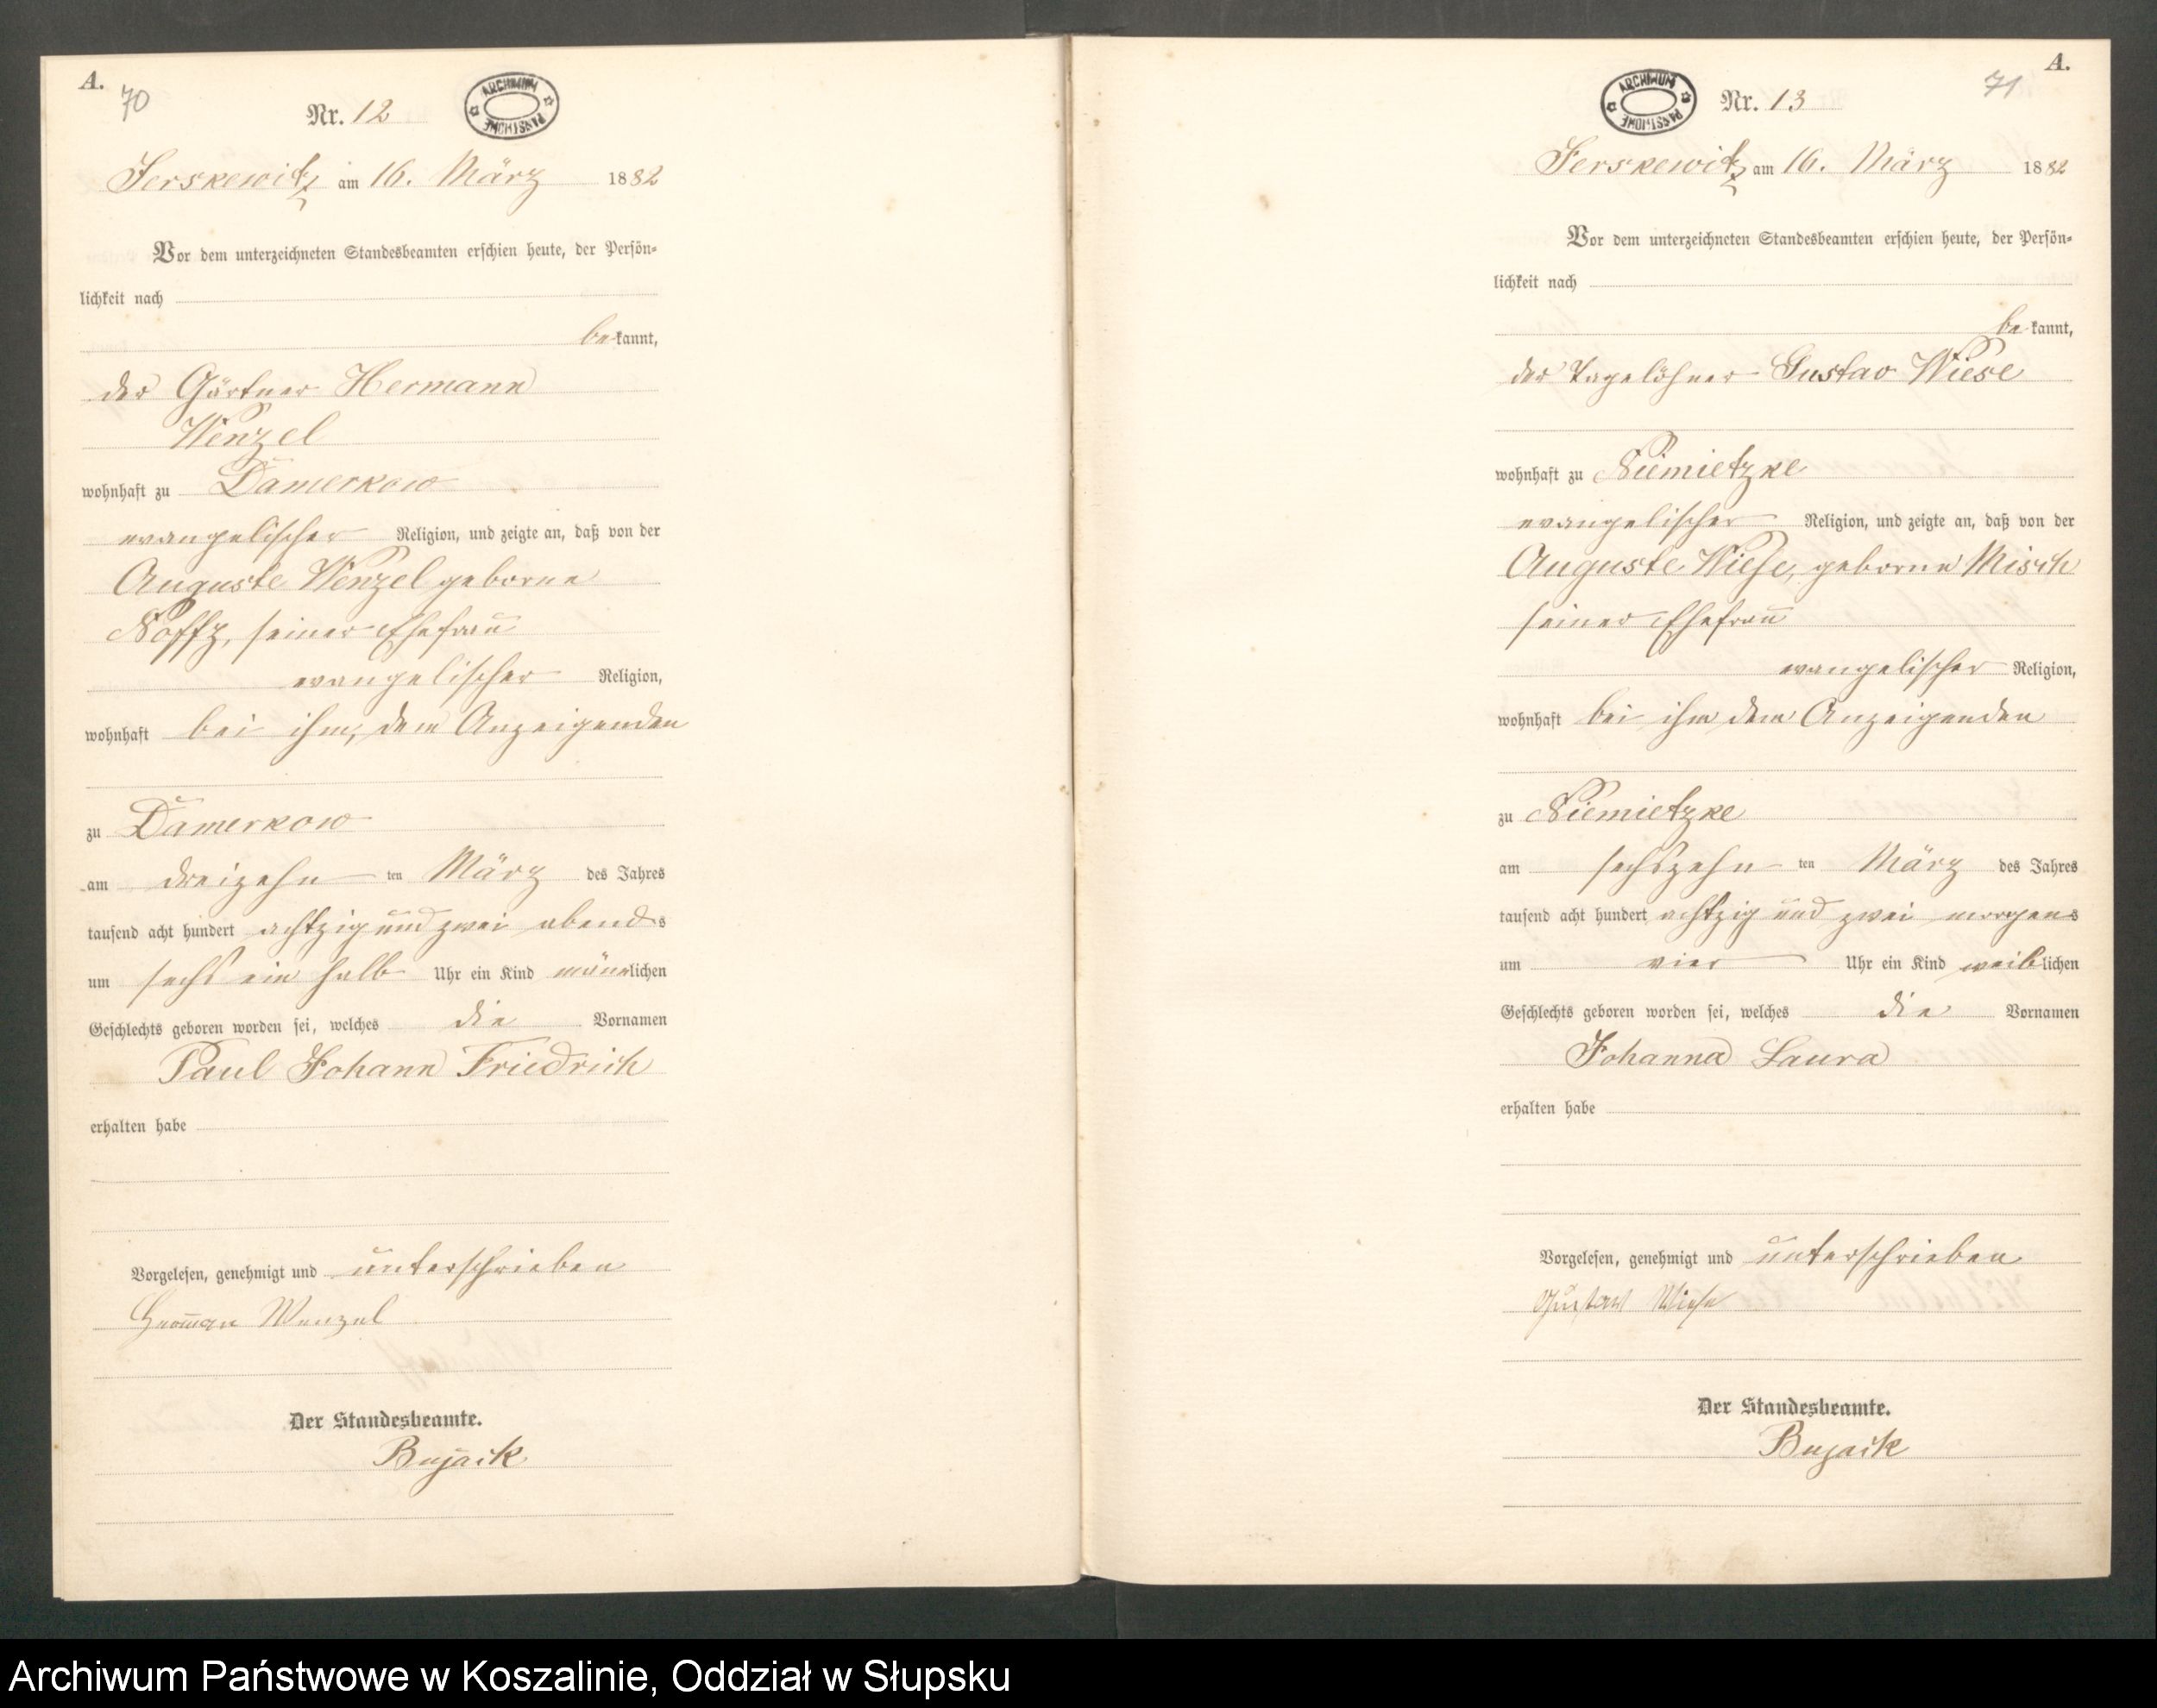 A.
70
Nr. 12
ARCHIWUM PAŃSTWOWE
Jerskewitz am 16. März 1882
Vor dem unterzeichneten Standesbeamten erschien heute, der Persön-
lichkeit nach
bekannt,
der Gärtner Hermann
Wenzel
wohnhaft zu Damerkow
evangelischer Religion, und zeigte an, daß von der
Auguste Wenzel geborne
Noffz, seiner Ehefrau
evangelischer Religion,
wohnhaft bei ihm, dem Anzeigenden
zu Damerkow
am dreizehn ten März des Jahres
tausend acht hundert achtzig und zwei abends
um sechs ein halb Uhr ein Kind männlichen
Geschlechts geboren worden sei, welches die Vornamen
Paul Johann Friedrich
erhalten habe
Vorgelesen, genehmigt und unterschrieben
Herman Wenzel
Der Standesbeamte.
Bujack
A.
71
ARCHIWUM PAŃSTWOWE
Nr. 13
Jerskewitz am 16. März 1882
Vor dem unterzeichneten Standesbeamten erschien heute, der Persön-
lichkeit nach
bekannt,
der Tagelöhner Gustav Wiese
wohnhaft zu Niemietzke
evangelischer Religion, und zeigte an, daß von der
Auguste Wiese, geborne Misch
seiner Ehefrau
evangelischer Religion,
wohnhaft bei ihm dem Anzeigenden
zu Niemietzke
am sechszehn ten März des Jahres
tausend acht hundert achtzig und zwei morgens
um vier Uhr ein Kind weiblichen
Geschlechts geboren worden sei, welches die Vornamen
Johanna Laura
erhalten habe
Vorgelesen, genehmigt und unterschrieben
Gustav Wiese
Der Standesbeamte.
Bujack
Archiwum Państwowe w Koszalinie, Oddział w Słupsku